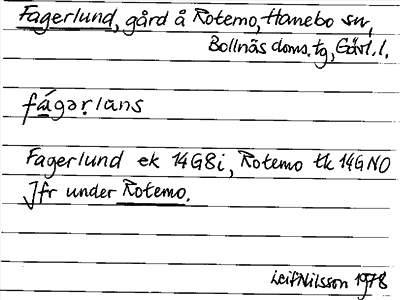 Fagerlund, gård å Rotemo, Hanebo sn,
Bollnäs doms. tg, Gävl. l.
fágərḷans
Fagerlund ek 14G8i, Rotemo tk 14GNO
Jfr under Rotemo.
Leif Nilsson 1978